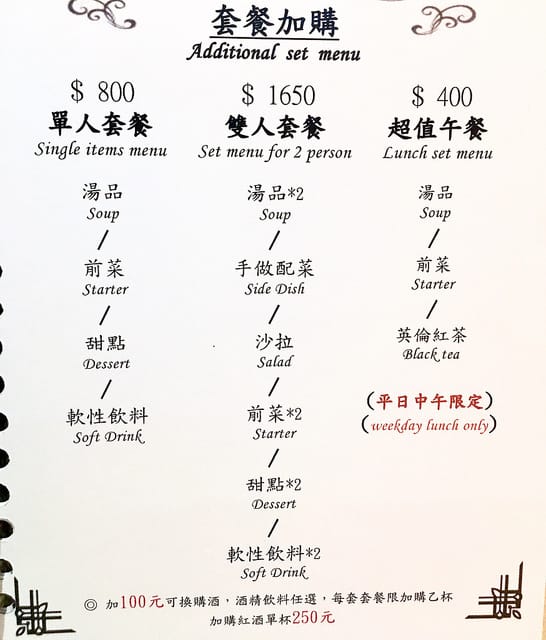 套餐加購
Additional set menu
$ 800
單人套餐
Single items menu
湯品
Soup
/
前菜
Starter
/
甜點
Dessert
/
軟性飲料
Soft Drink
$ 1650
雙人套餐
Set menu for 2 person
湯品*2
Soup
/
手做配菜
Side Dish
/
沙拉
Salad
/
前菜*2
Starter
/
甜點*2
Dessert
/
軟性飲料*2
Soft Drink
$ 400
超值午餐
Lunch set menu
湯品
Soup
/
前菜
Starter
/
英倫紅茶
Black tea
(平日中午限定)
(weekday lunch only)
◎ 加100元可換購酒，酒精飲料任選，每套套餐限加購乙杯
加購紅酒單杯250元